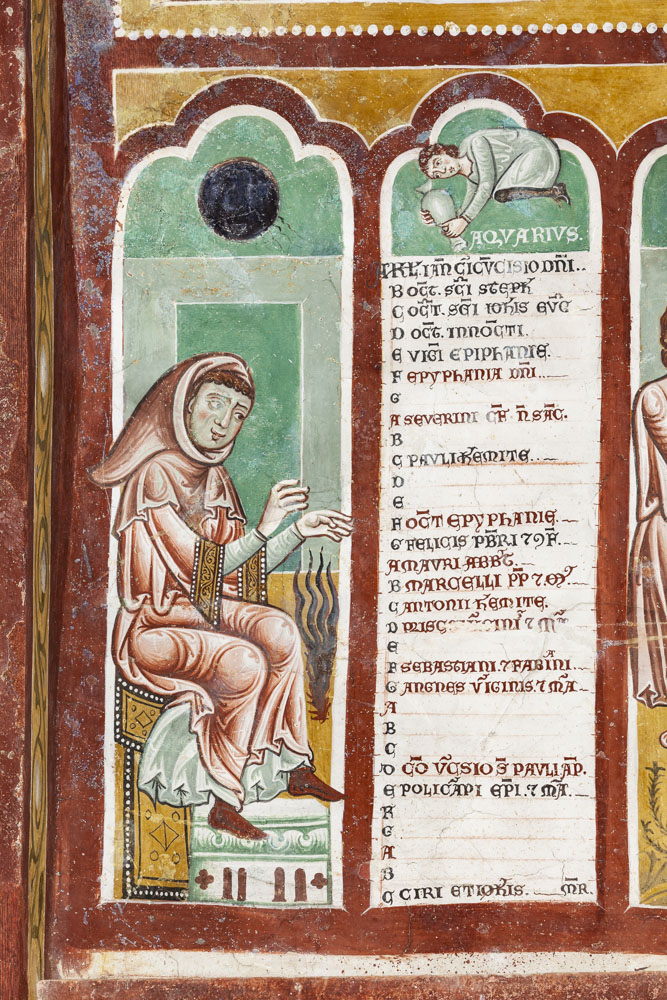 AQVARIVS.
B OCT. SCI STEPH
C OCT. SCI IOHIS EVG
D OCT. INNOCTI.
E VIGI EPIPHANIE.
F EPYPHANIA DNI.
G
A SEVERINI
B
C PAVLI HEMITE.
D
E
F OCT EPYPHANIE
G FELICIS PBRI 7
A MAVRI ABBT.
B MARCELLI PP 7
C ANTONII HEMITE.
D
E
F SEBASTIANI. 7 FABINI
G ANGNES VIGINIS. 7 MA
A
B
C
D VSIO S PAVLI AP.
E POLICAPI EPI. 7 MA.
F
G
A
B
C CIRI ET IOHIS. MR.